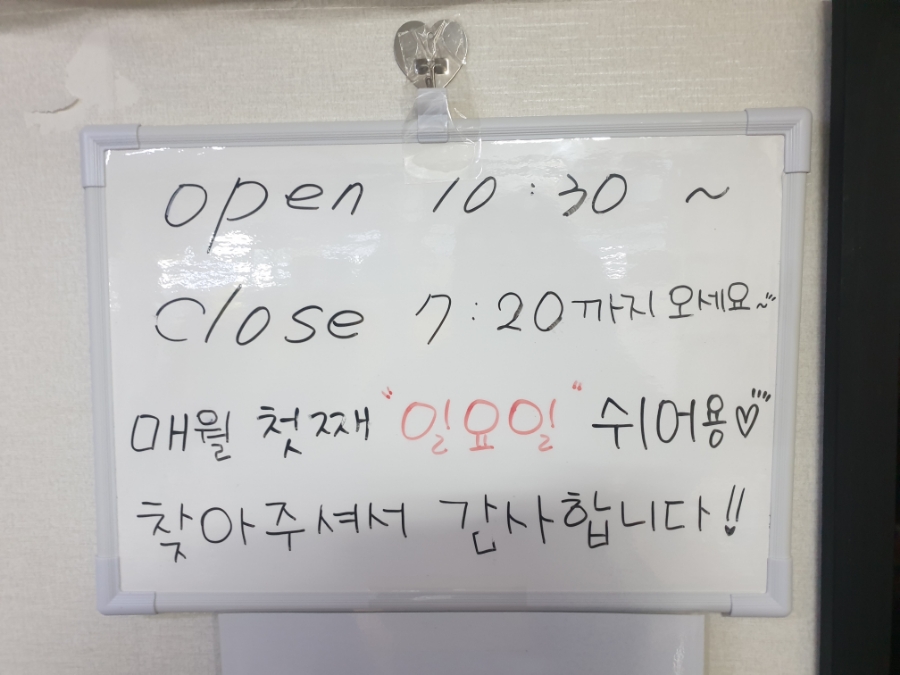 open 10:30 ~
close 7:20까지 오세요~
매월 첫째 "일요일" 쉬어용♡
찾아주셔서 감사합니다!!